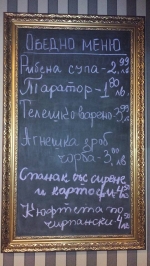 ОБЕДНО МЕНЮ
Рибена супа - 2,99 лв
Таратор - 1,80 лв
Телешко варено - 3,99 лв
Агнешка дроб
чорба - 3,00 лв
Спанак със сирене
и картофи 4,50 лв
Кюфтета по
чирпански 4, лв